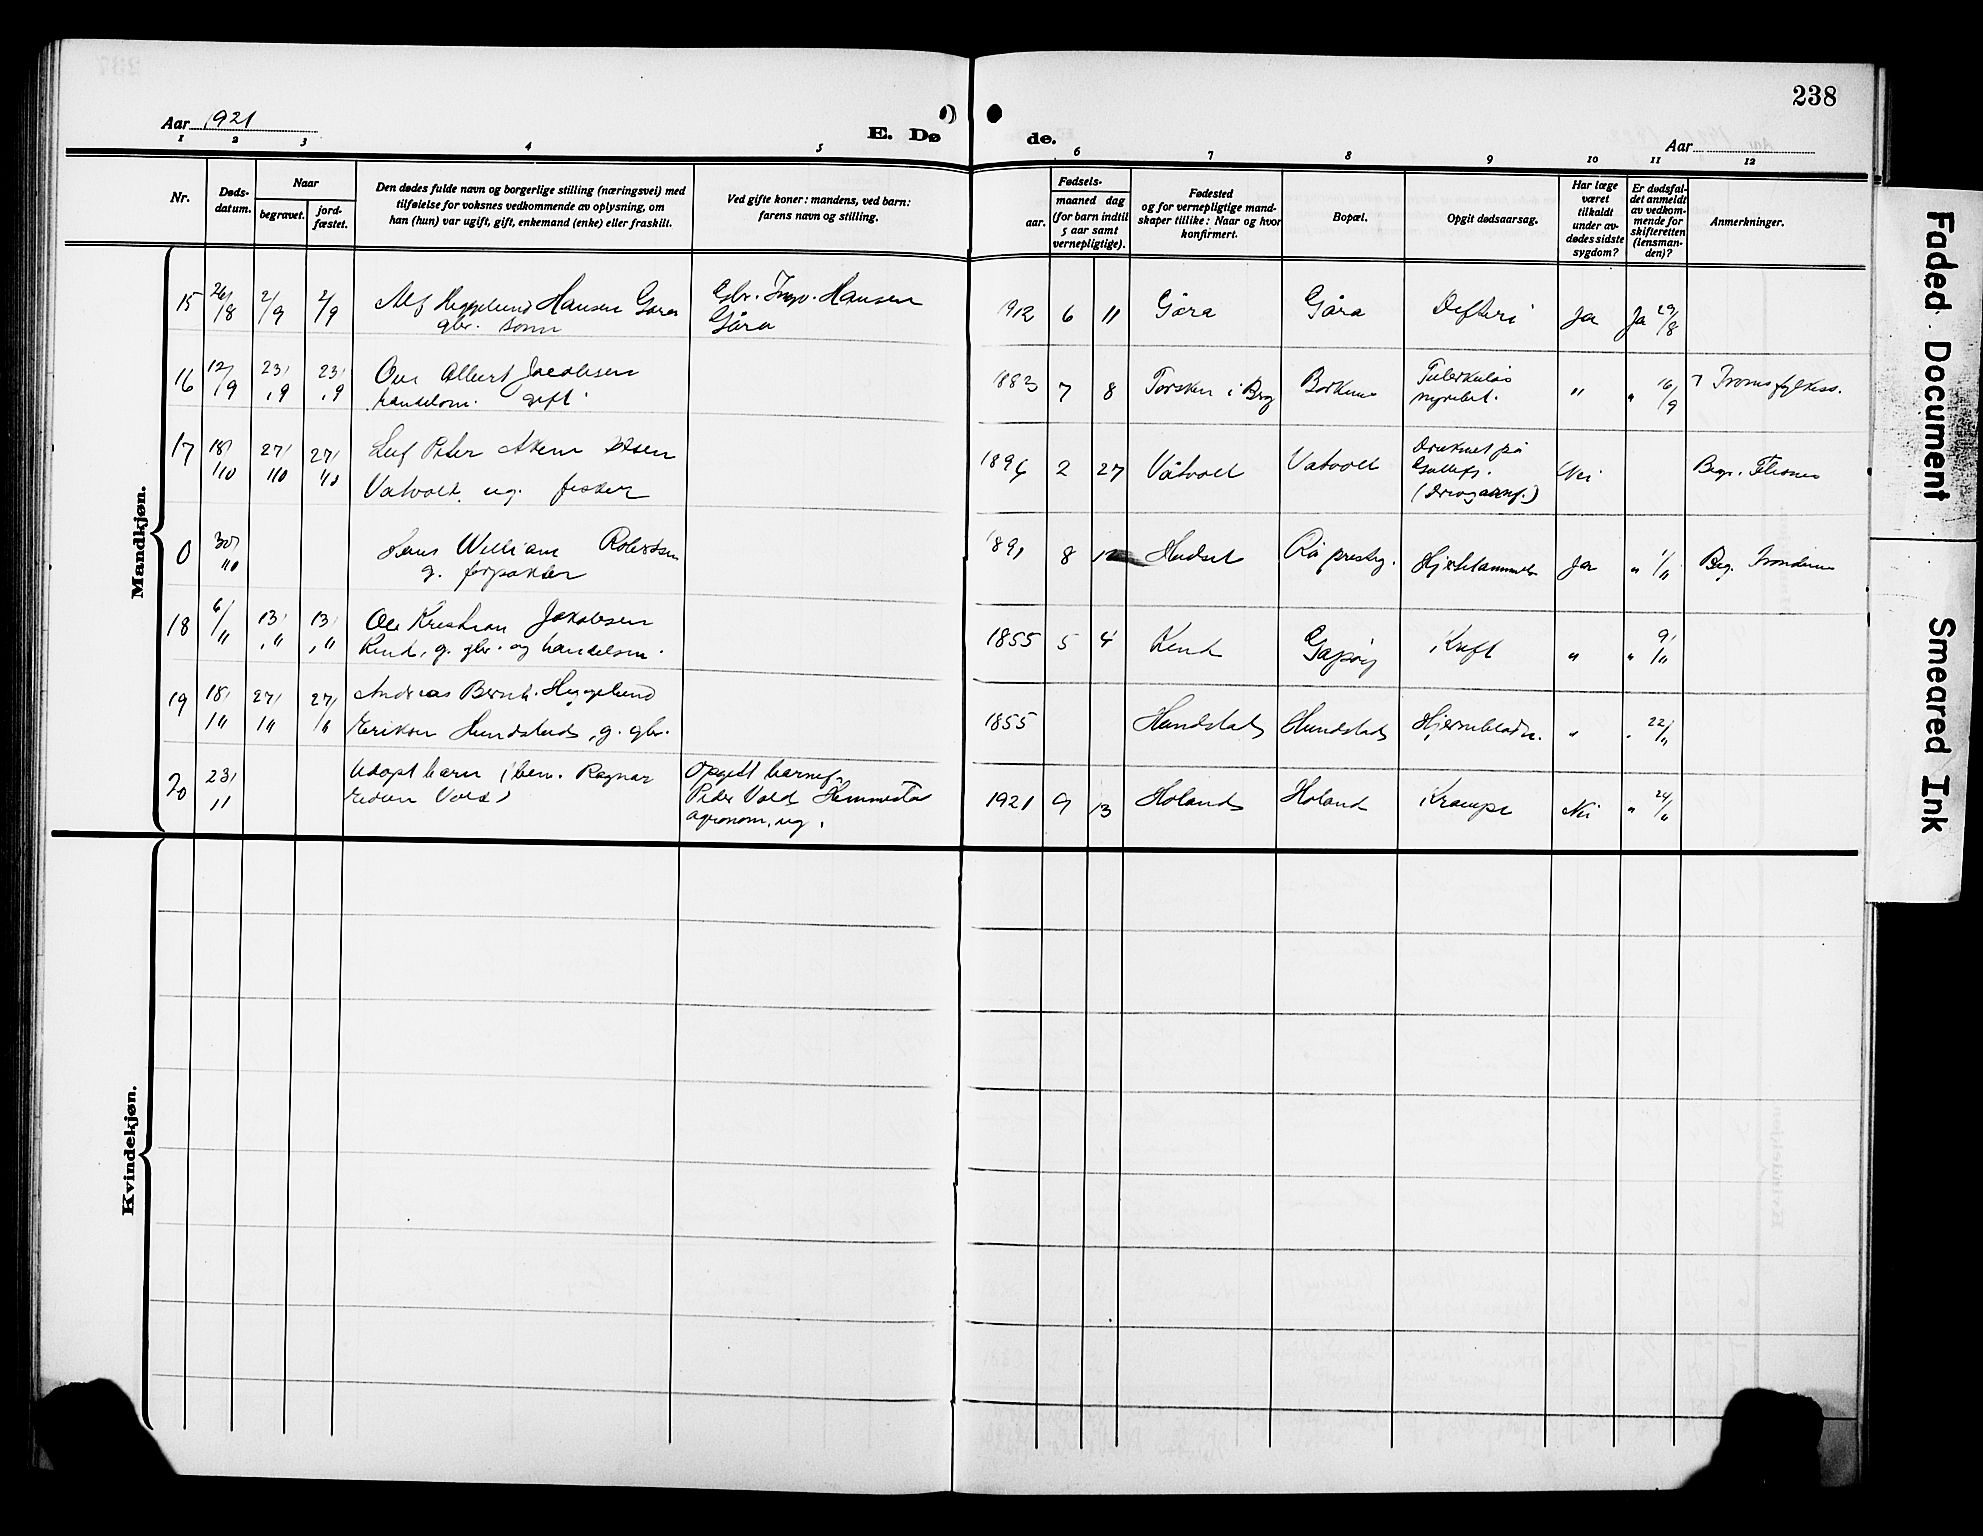 238
Aar 1921
E. Dø
de.
Aar
1 2 3 4 5 6 7 8 9 10 11 12
Nr.
Døds-
datum.
Naar
begravet.
jord-
fæstet.
Den dødes fulde navn og borgerlige stilling (næringsvei) med
tilføielse for voksnes vedkommende av oplysning, om
han (hun) var ugift, gift, enkemand (enke) eller fraskilt.
Ved gifte koner: mandens, ved barn:
farens navn og stilling.
Fødsels-
aar.
maaned dag
(for barn indtil
5 aar samt
vernepligtige).
Fødested
og for vernepligtige mand-
skaper tillike: Naar og hvor
konfirmert.
Bopæl.
Opgit dødsaarsag.
Har læge
været
tilkaldt
under av-
dødes sidste
sygdom?
Er dødsfal-
det anmeldt
av vedkom-
mende for
skifteretten
(lensman-
den)?
Anmerkninger.
Mandkjøn.
15 26/8 2/9 2/9 Alf Heggelund Hansen Gåra Gbr. Ingv. Hansen 1912 6 11 Gåra Gåra Difteri Ja Ja 29/8
gbr. sønn Gåra
16 12/9 23/9 23/9 Ove Albert Jacobsen 1883 7 8 Torsken i Berg Tuberkuløs " " 16/9
handelsm. gift
17 18/10 27/10 27/10 Leif Peter 1896 2 27 Våtvoll Vatvoll Druknet på Nei
Vatvoll, ug. fisker
0 30/10 Hans William Robertsen 1891 8 Hadsel Ja " 1/11
g. forpakter
18 6/11 13/11 13/11 Ole Kristian Jakobsen 1855 5 4 Kind Gapøy Kreft " " 9/11
Kind, g. gbr. og handelsm.
19 18/11 27/11 27/11 Andreas Bernh. Heggelund 1855 Hundstad Hundstad " " 22/11
Eriksen Hundstad, g. gbr.
20 23/11 Udøpt barn (ben. Ragnar Opgitt barnef. 1921 9 13 Holand Holand Krampe Nei " 24/11
Vold) Peder Vold
agronom, ug.
Kvindekjøn.
Faded Document
Smeared Ink